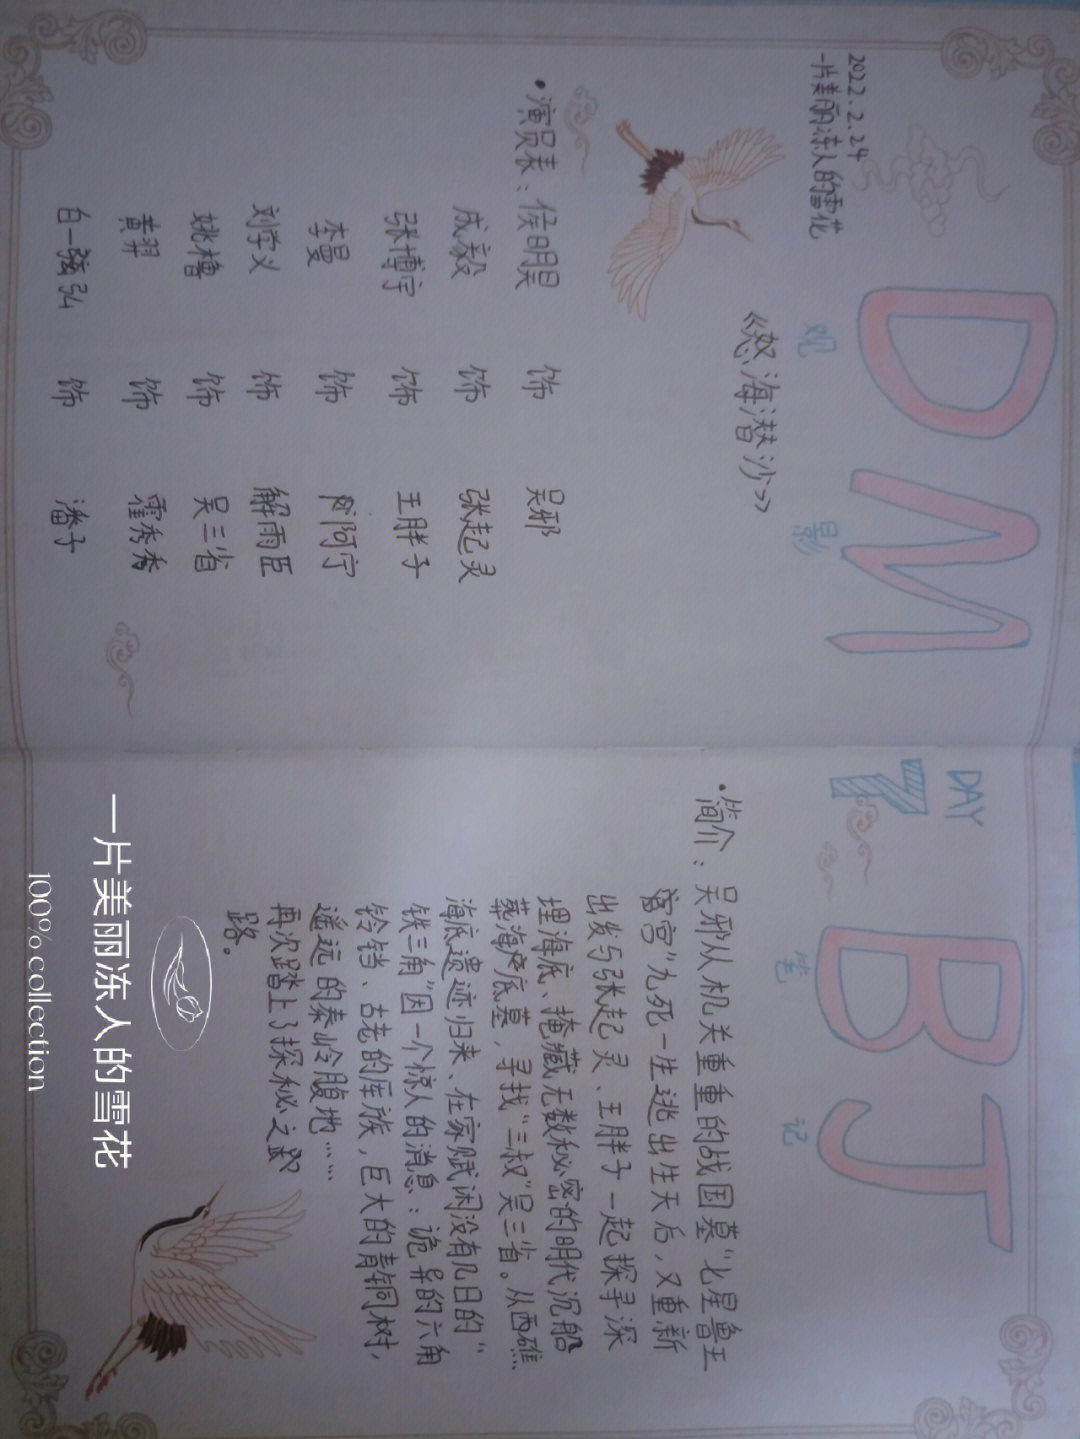 2022.2.24
一片美丽冻人的雪花
DM
观影
《怒海潜沙》
•演员表：侯明昊 饰 吴邪
成毅 饰 张起灵
张博宇 饰 王胖子
李曼 饰 阿宁
刘学义 饰 解雨臣
姚橹 饰 吴三省
黄羿 饰 霍秀秀
白一弘 饰 潘子
DAY
7
BJ
笔记
•简介：吴邪从机关重重的战国墓“七星鲁王
宫”九死一生逃出生天后，又重新
出发与张起灵、王胖子一起探寻深
埋海底、掩藏无数秘密的明代沉船
葬海底墓，寻找“三叔”吴三省。从西礁
海底遗迹归来、在家赋闲没有几日的“
铁三角”因一个惊人的消息：诡异的六角
铃铛、古老的厍族，巨大的青铜树，
遥远的秦岭腹地……
再次踏上了探秘之
路。
一片美丽冻人的雪花
100% collection